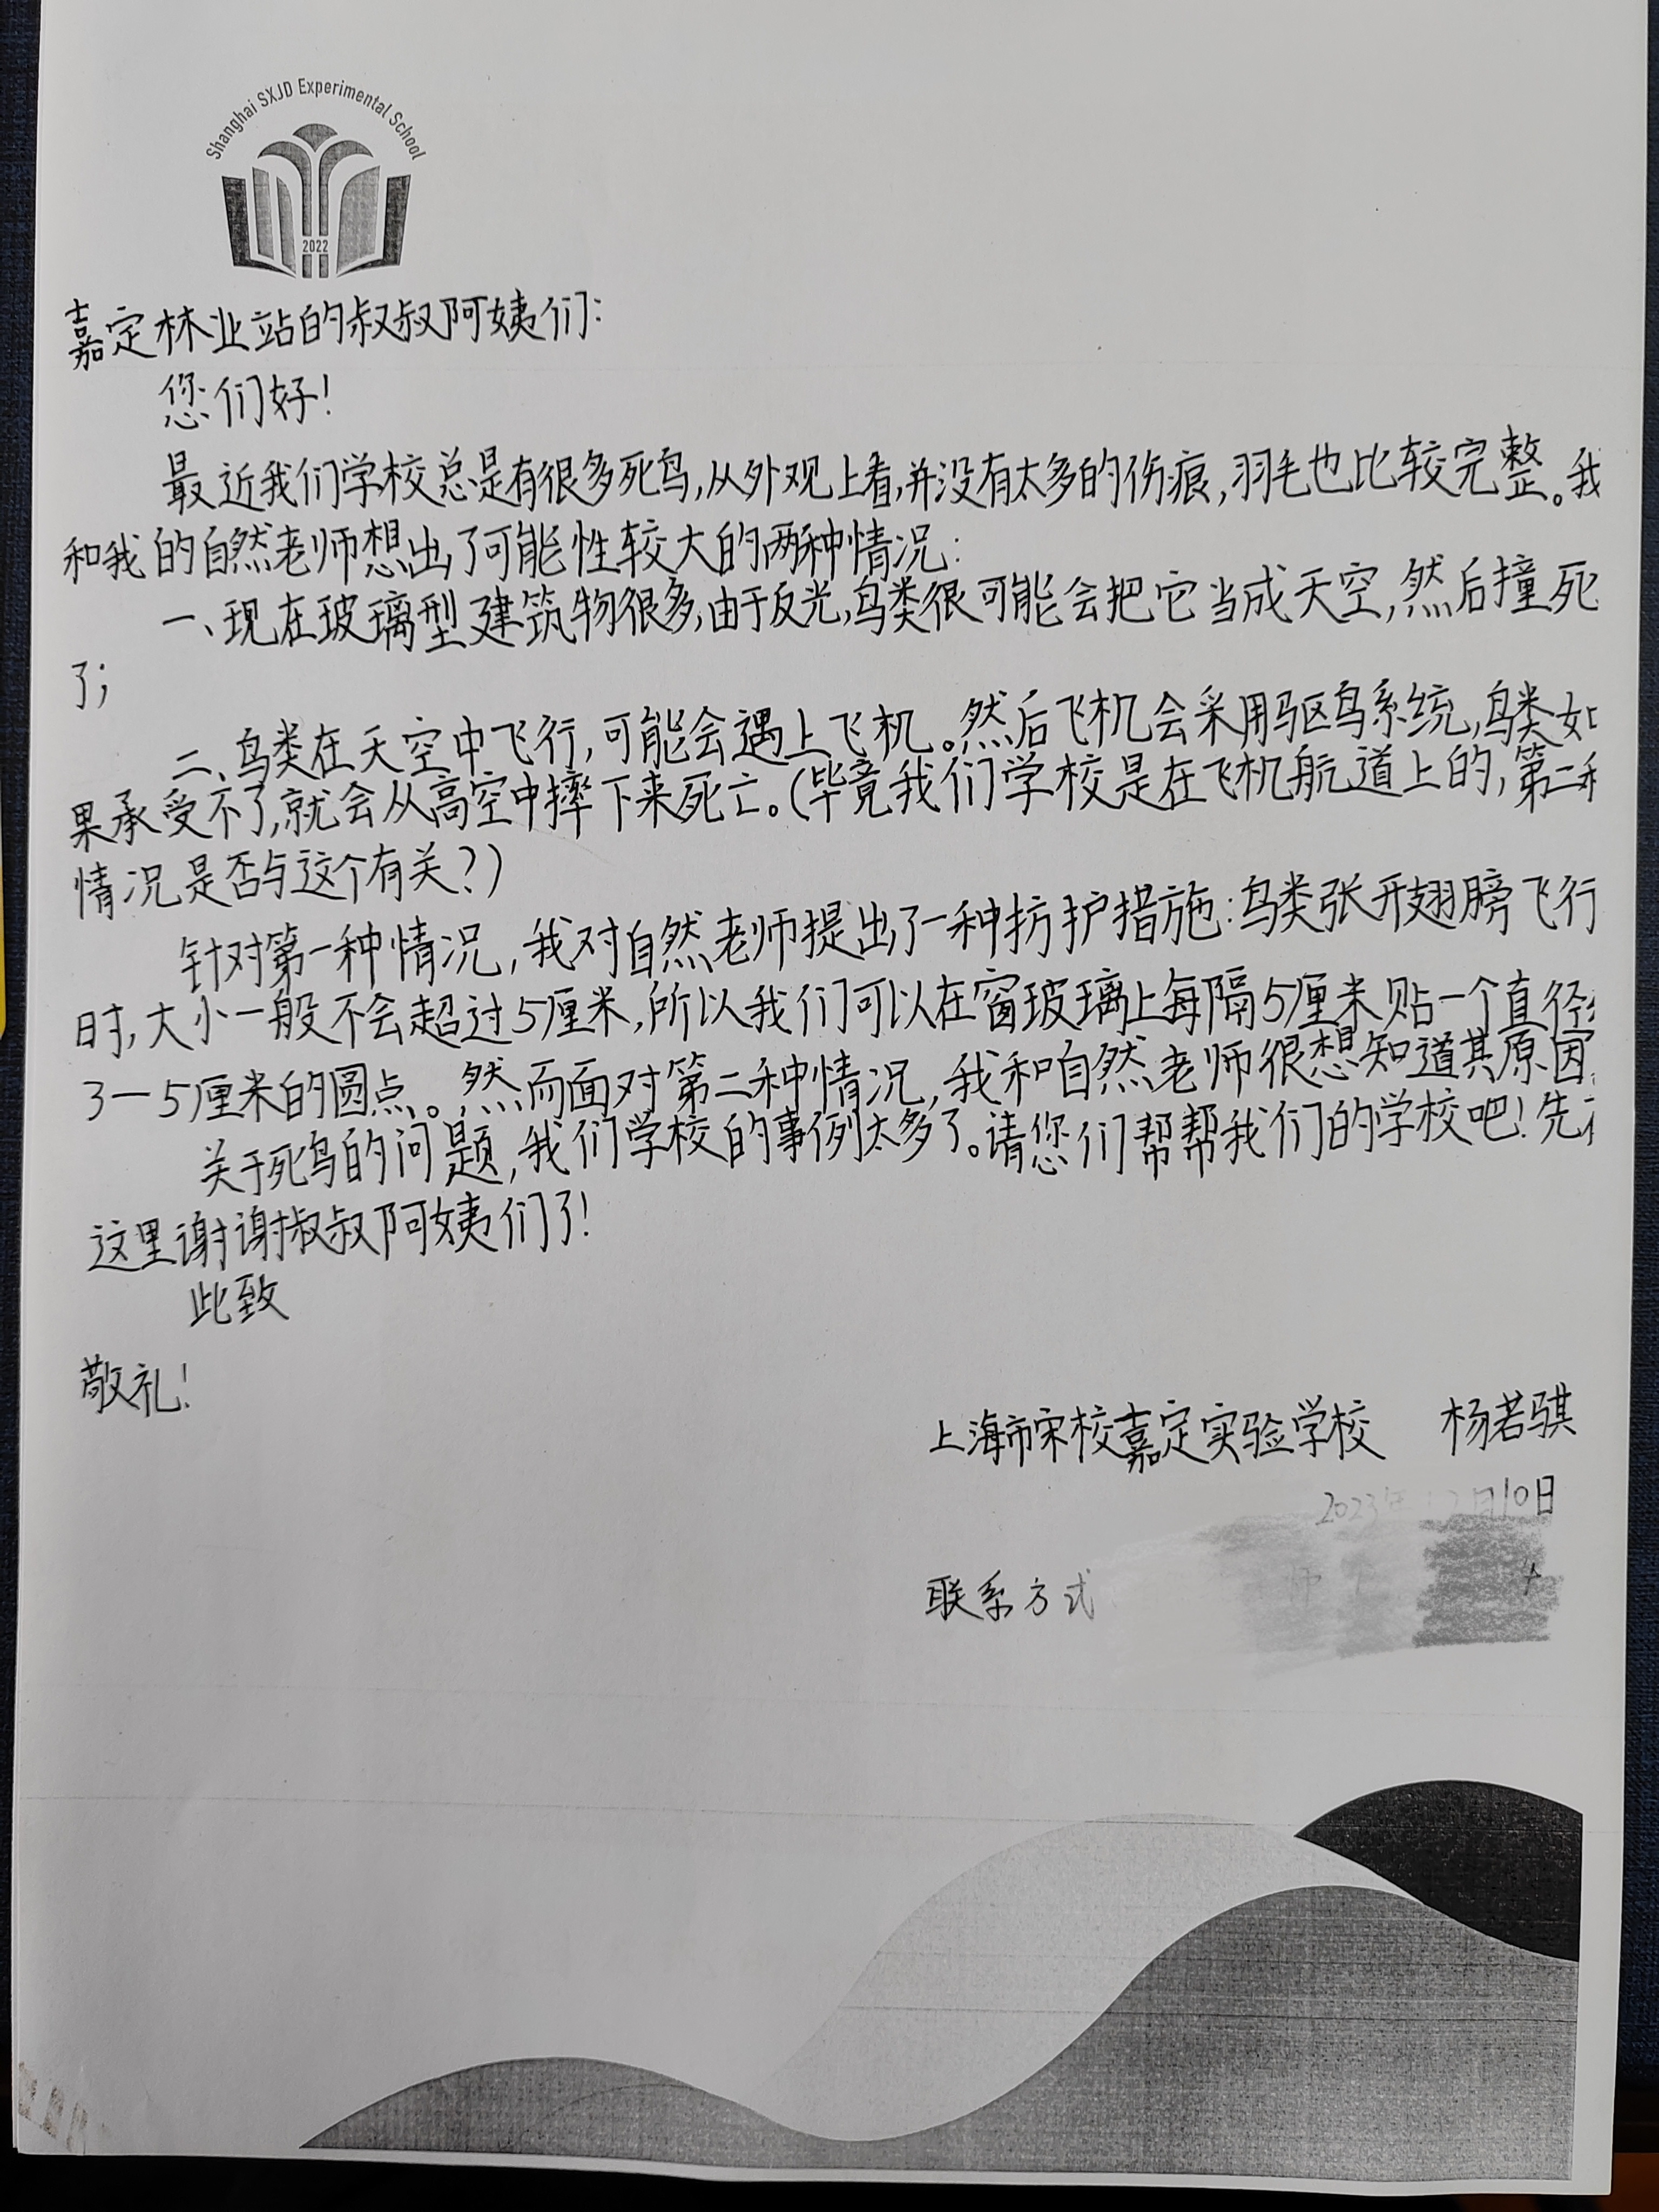 Shanghai SXJD Experimental School
2022
嘉定林业站的叔叔阿姨们:
您们好!
最近我们学校总是有很多死鸟,从外观上看,并没有太多的伤痕,羽毛也比较完整。我
和我的自然老师想出了可能性较大的两种情况:
一、现在玻璃型建筑物很多,由于反光,鸟类很可能会把它当成天空,然后撞死
了;
二、鸟类在天空中飞行,可能会遇上飞机。然后飞机会采用驱鸟系统,鸟类如
果承受不了,就会从高空中摔下来死亡。(毕竟我们学校是在飞机航道上的,第二
情况是否与这个有关?)
针对第一种情况,我对自然老师提出了一种防护措施:鸟类张开翅膀飞行
时,大小一般不会超过5厘米,所以我们可以在窗玻璃上每隔5厘米贴一个直径
3—5厘米的圆点。然而面对第二种情况,我和自然老师很想知道其原因。
关于死鸟的问题,我们学校的事例太多了。请您们帮帮我们的学校吧!先
这里谢谢叔叔阿姨们了!
此致
敬礼!
上海市宋校嘉定实验学校 杨若骐
2023年12月10日
联系方式